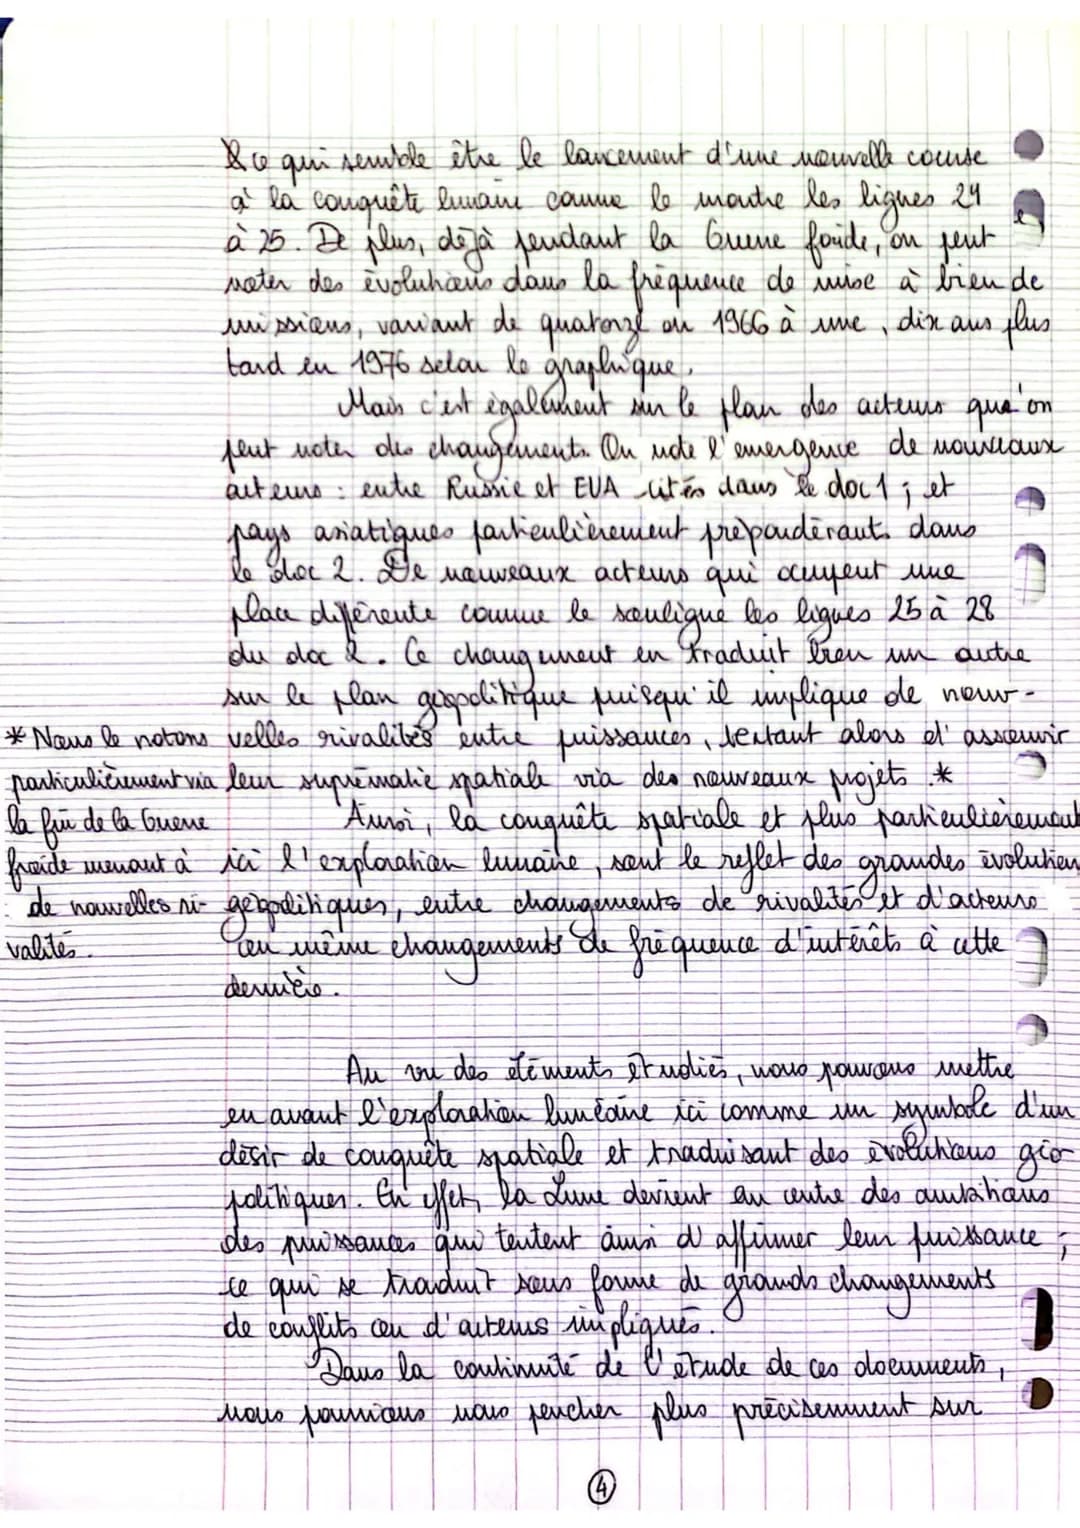 & ce qui semble être le lancement d'une nouvelle course
à la conquête lunaire comme le montre les lignes 24
à 25. De plus, déjà pendant la Guerre froide, on peut
noter des évolutions dans la fréquence de mise à bien de
missions, variant de quatorze en 1966 à une, dix ans plus
tard en 1976 selon le graphique.
Mais c'est également sur le plan des acteurs que'on
peut noter des changements. On note l'emergence de nouveaux
acteurs : entre Russie et EUA cités dans le doc 1 ; et
pays asiatiques particulièrement prépondérants dans
le doc 2. De nouveaux acteurs qui occupent une
place différente comme le souligne les lignes 25 à 28
du doc 2. Ce changement en traduit bien un autre
sur le plan géopolitique puisqu'il implique de nouv-
velles rivalités entre puissances, tentant alors d'assouvir
leur suprématie spatiale via des nouveaux projets. *
* Nous le notons
particulièrement via
la fin de la Guerre
froide menant à
de nouvelles ri-
valités.
Ainsi, la conquête spatiale et plus particulièrement
ici l'exploration lunaire, sont le reflet des grandes évolution
géopolitiques, entre changements de rivalités et d'acteurs
ou même changements de fréquence d'intérêts à cette
dernière.
Au vu des éléments étudiés, nous pouvons mettre
en avant l'exploration lunaire ici comme un symbole d'un
désir de conquête spatiale et traduisant des évolutions géo-
politiques. En effet, la Lune devient au centre des ambitions
des puissances qui tentent ainsi d'affirmer leur puissance ;
ce qui se traduit sous forme de grands changements
de conflits ou d'acteurs impliqués.
Dans la continuité de l'étude de ces documents,
nous pourrions nous pencher plus précisemment sur
4